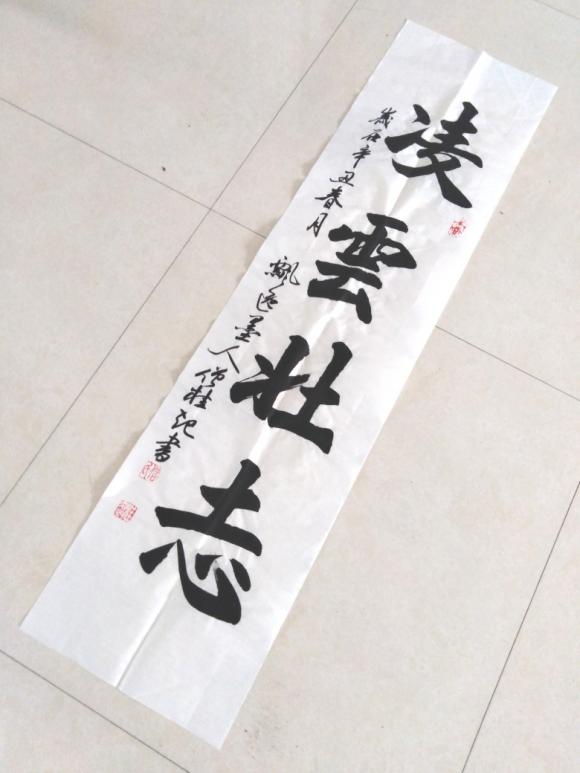 凌雲壯志
歲在辛丑春月 飄逸墨人 書